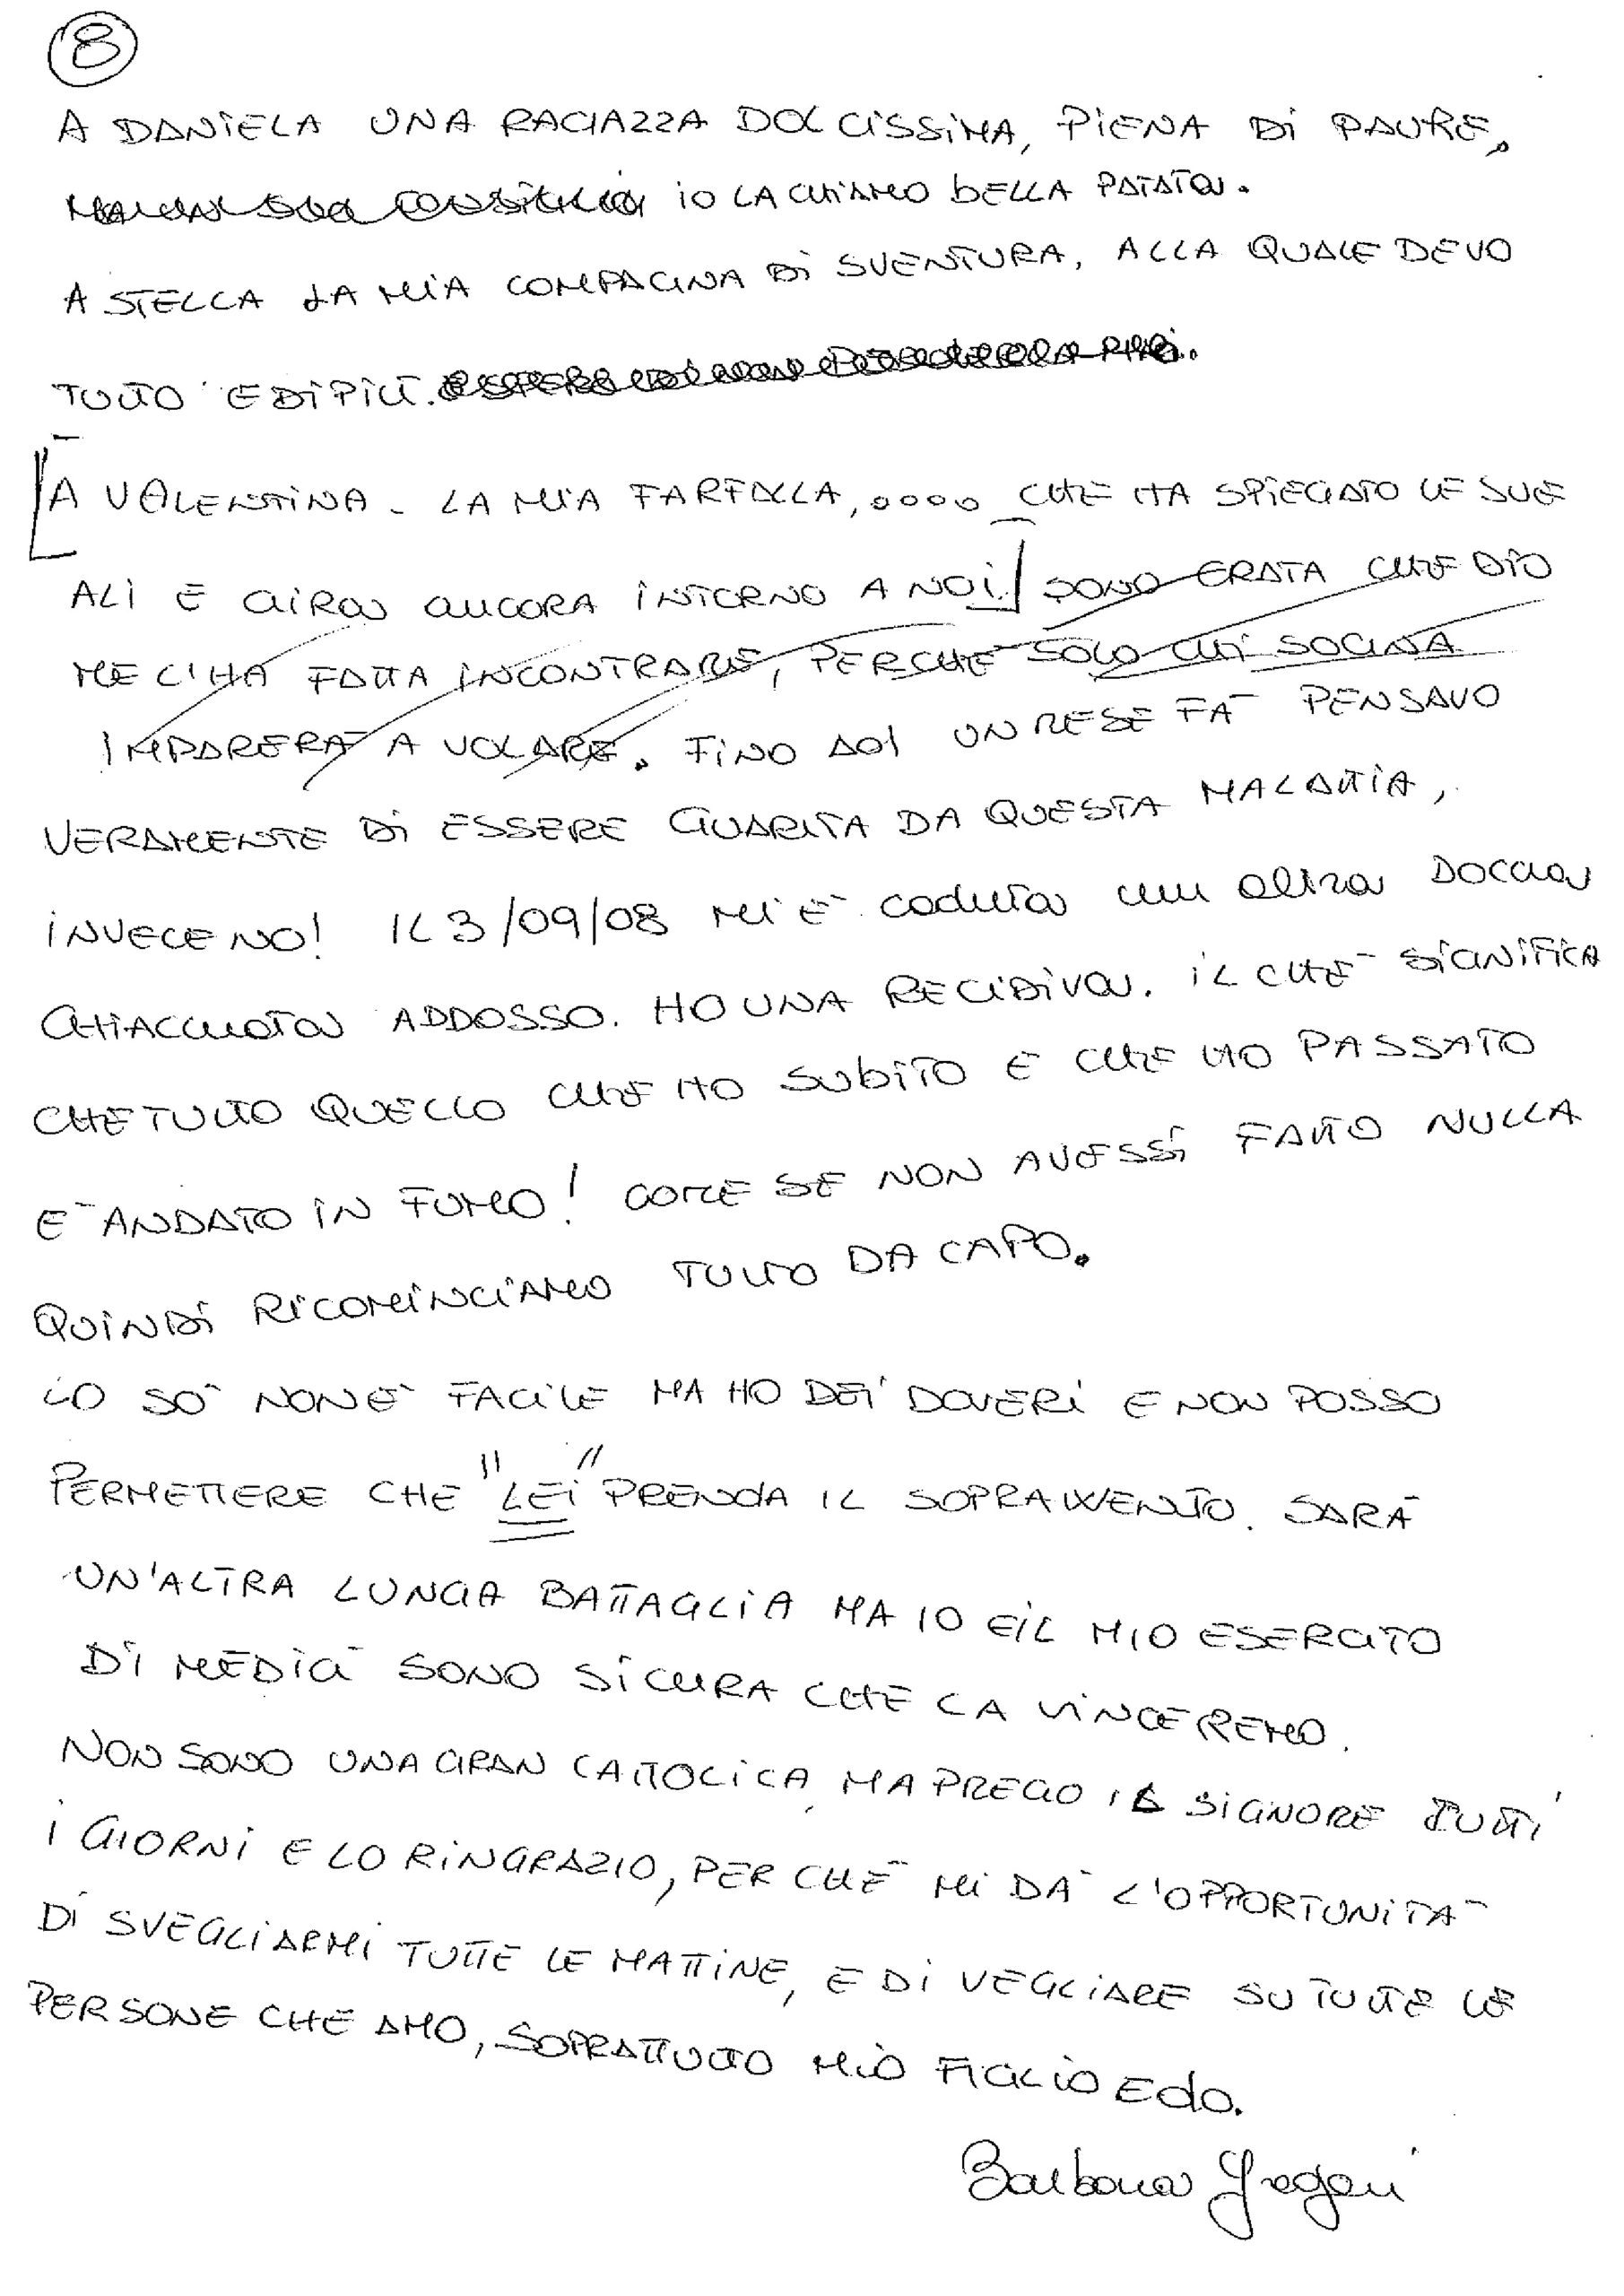 8
A DANIELA UNA RAGAZZA DOLCISSIMA, PIENA DI PAURE,
IO LA CHIAMO BELLA PATATA.
A STELLA LA MIA COMPAGNA DI SVENTURA, ALLA QUALE DEVO
TUTTO E DI PIÙ.
[A VALENTINA - LA MIA FARFALLA,.... CHE HA SPIEGATO LE SUE
ALI E GIRA ANCORA INTORNO A NOI.] SONO GRATA CHE DIO
ME L'HA FATTA INCONTRARE, PERCHÈ SOLO CHI SOGNA
IMPARERÀ A VOLARE. FINO AD 1 UN MESE FÀ PENSAVO
VERAMENTE DI ESSERE GUARITA DA QUESTA MALATTIA,
INVECE NO! IL 3/09/08 MI È CADUTA UN ALTRA DOCCIA
GHIACCIATA ADDOSSO. HO UNA RECIDIVA. IL CHÈ SIGNIFICA
CHE TUTTO QUELLO CHE HO SUBITO E CHE HO PASSATO
È ANDATO IN FUMO! COME SE NON AVESSI FATTO NULLA
QUINDI RICOMINCIAMO TUTTO DA CAPO.
LO SÒ NON È FACILE MA HO DEI DOVERI E NON POSSO
PERMETTERE CHE "LEI" PRENDA IL SOPRAVVENTO. SARÀ
UN'ALTRA LUNGA BATTAGLIA MA IO E IL MIO ESERCITO
DI MEDICI SONO SICURA CHE LA VINCEREMO.
NON SONO UNA GRAN CATTOLICA, MA PREGO IL SIGNORE TUTTI
I GIORNI E LO RINGRAZIO, PERCHÈ MI DÀ L'OPPORTUNITÀ
DI SVEGLIARMI TUTTE LE MATTINE, E DI VEGLIARE SU TUTTE LE
PERSONE CHE AMO, SOPRATTUTTO MIO FIGLIO EDO.
Barbara